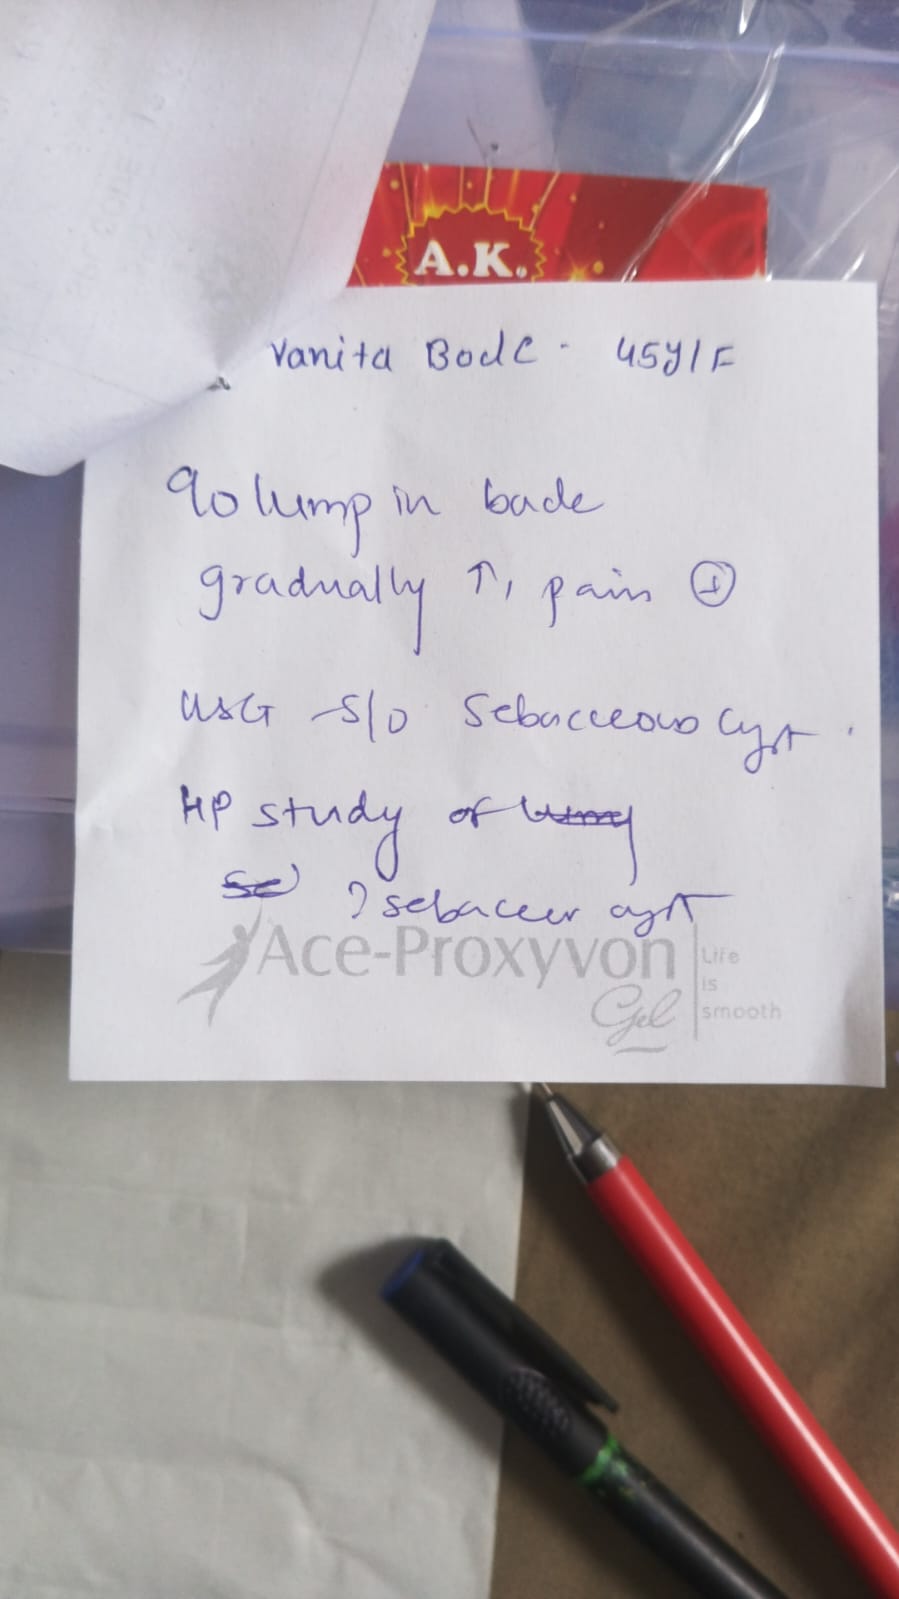 A.K.
Vanita Bode - 45y/F
c/o lump in back
gradually ↑, pain ⊕
USG S/o Sebacceous Cyst.
HP study of
? sebaceer cyst
Ace-Proxyvon
Gel
Life
is
smooth